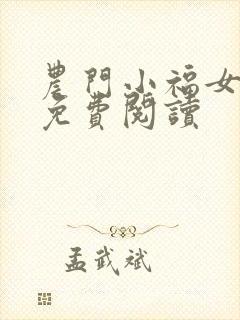 農門小福女
免費閱讀
孟武斌